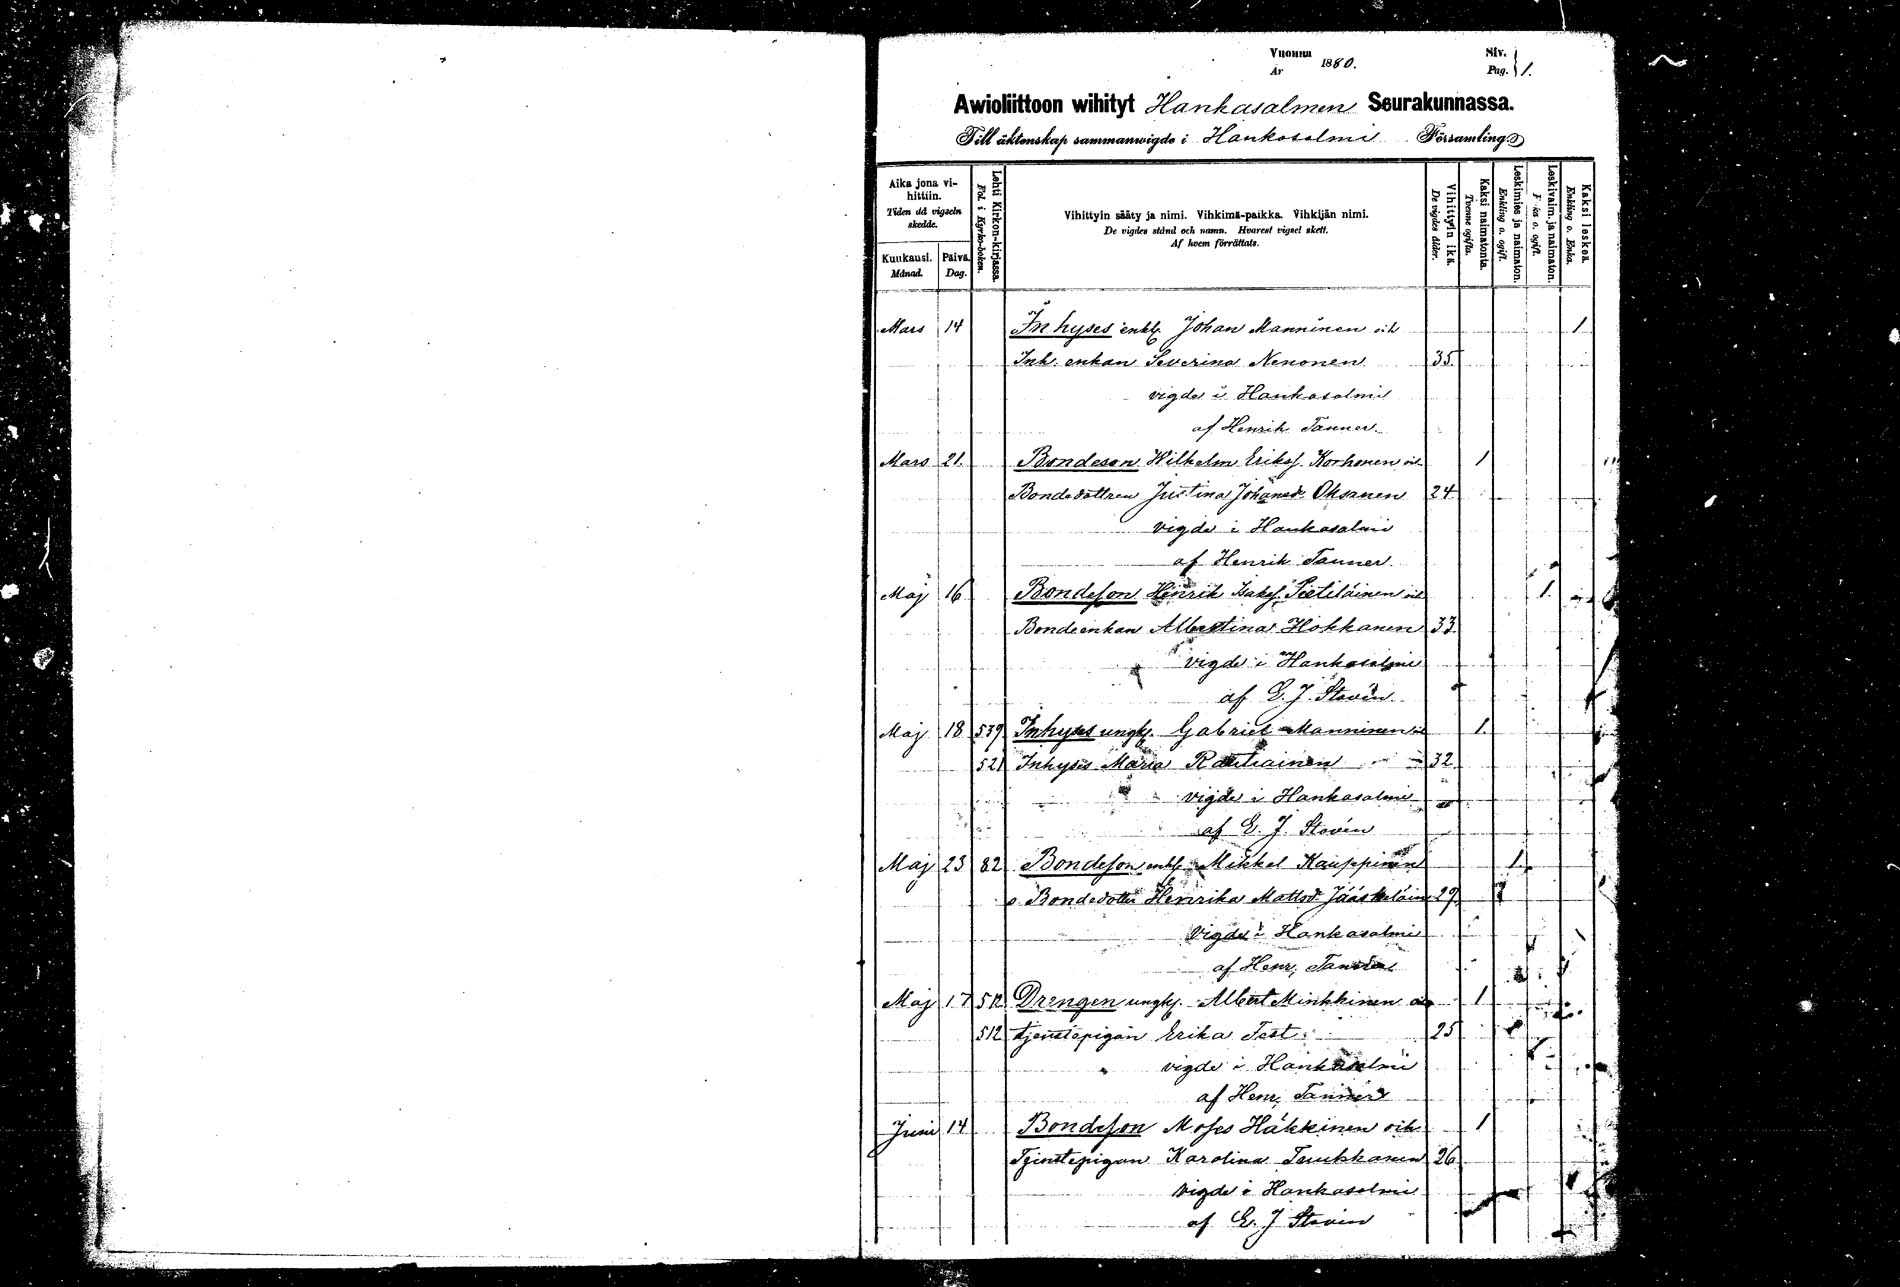 Vuonna 1880. Siv. 1.
År Pag.
Awioliittoon wihityt Hankasalmen Seurakunnassa.
Till äktenskap sammanwigde i Hankasalmi Församling
Aika jona vi-
hittiin.
Tiden då vigseln
skedde.
Kuukausi.
Månad.
Päivä.
Dag.
Lehti Kirkon-kirjassa.
Fol. i Kyrko-boken.
Vihittyin sääty ja nimi. Vihkimä-paikka. Vihkijän nimi.
De vigdes stånd och namn. Hvarest vigsel skett.
Af hvem förrättats.
Vihittyin ikä.
De vigdes ålder.
Kaksi naimatonta.
Tvenne ogifta.
Leskimies ja naimaton.
Enkling o. ogift.
Leskivaim. ja naimaton.
Enka o. ogift.
Kaksi leskeä.
Enkling o. Enka.
Mars 14 Inhyses enkl. Johan Manninen och 1
Inh. enkan Severina Nenonen 35.
vigde i Hankasalmi
af Henrik Tanner.
Mars 21. Bondeson Wilhelm Eriksf. Korhonen och 1
Bondedottren Justina Johansd. Oksanen 24
vigde i Hankasalmi
af Henrik Tanner
Maj 16 Bondeson Henrik Isaksf. Pietiläinen och 1.
Bondeenkan Albertina Hokkanen 33
vigde i Hankasalmi
af E. J. Stovén.
Maj 18 539 Inhyses ungk. Gabriel Manninen och 1.
521 Inhyses Maria Rautiainen 32
vigde i Hankasalmi
af E. J. Stovén
Maj 23 82 Bondeson enkl. Mikkel Kauppinen 1
o. Bondedotter Henrika Mattsd. Jääskeläin 29.
vigde i Hankasalmi
af Henr. Tanner
Maj 17 512 Drengen ungk. Albert Minkkinen och 1
512 tjenstepigan Erika Test 25
vigde i Hankasalmi
af Henr. Tanner
Juni 14 Bondeson Moses Häkkinen och 1
Tjenstepigan Karolina 26
vigde i Hankasalmi
af E. J Stovén